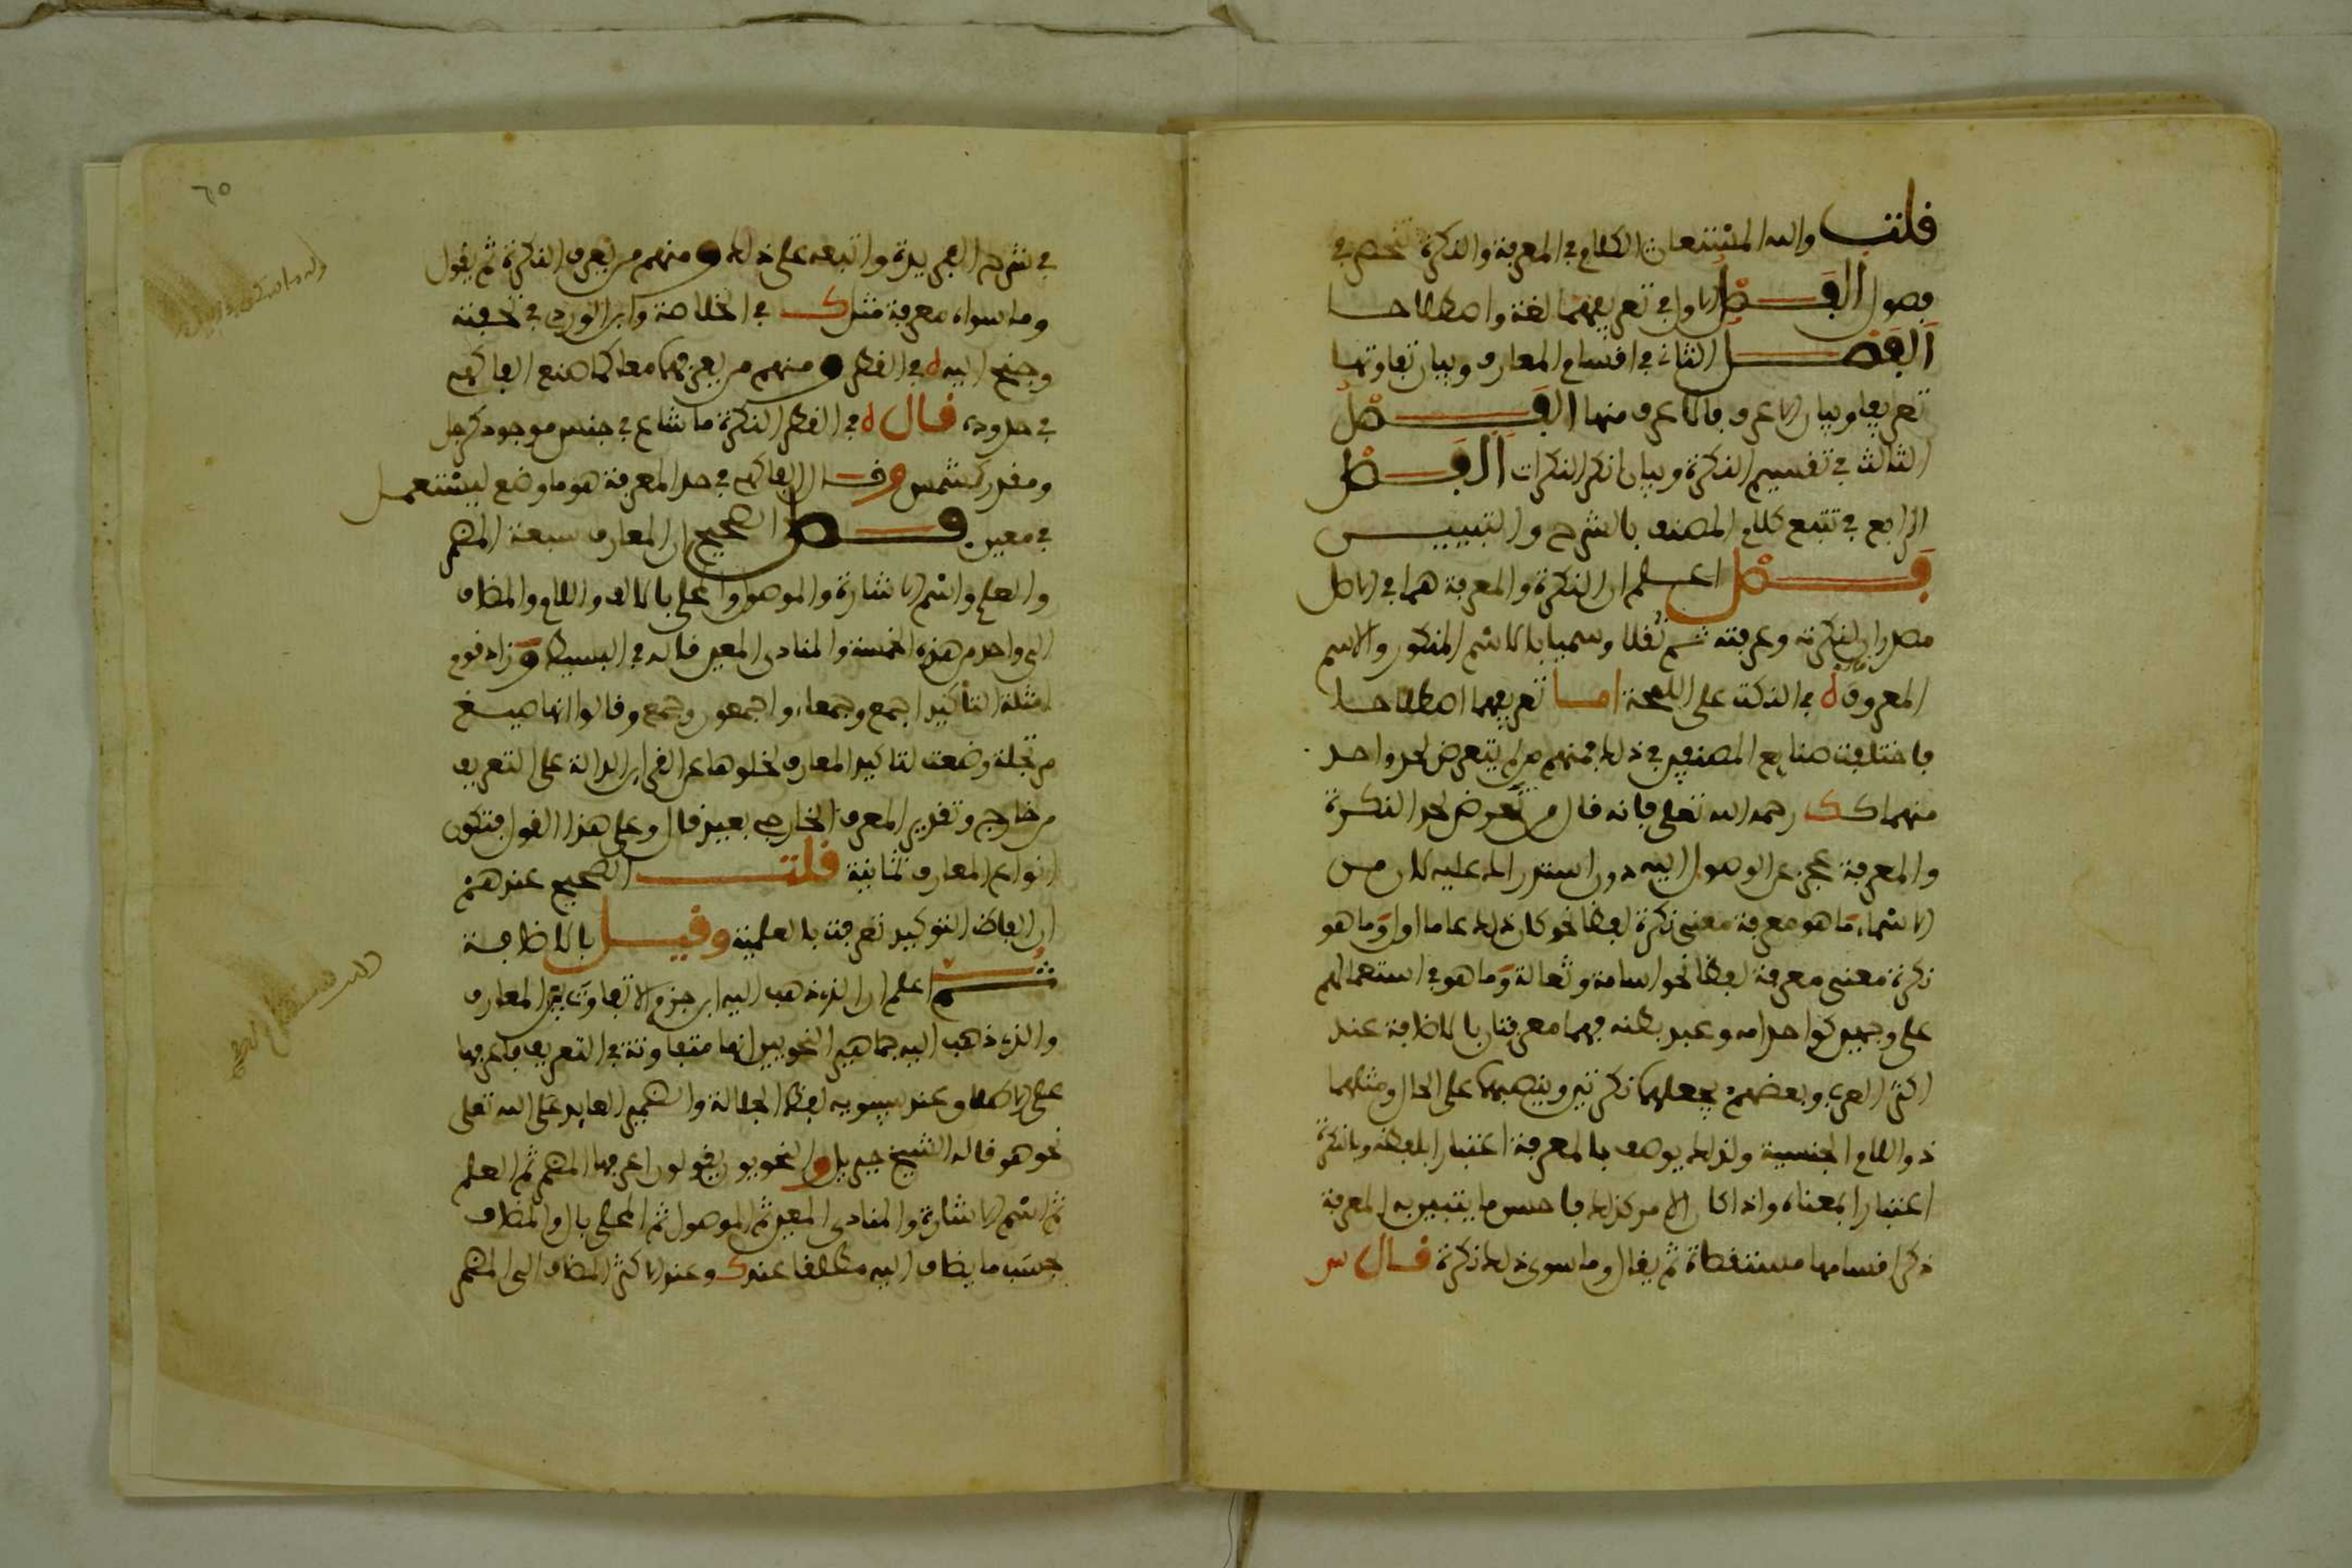 قلت والله المستعان الكلام في المعرفة والنكرة تنحصر في
فصول الفصل الاول في تعريفهما لغة واصطلاحا
الفصل الثاني في اقسام المعارف وبيان تفاوتها
تعريفا وبيان الاعرف فالاعرف منها الفصل
الثالث في تقسيم النكرة وبيان انكر النكرات الفصل
الرابع في تتبع كلام المصنف بالشرح والتبيين
فصل اعلم ان النكرة والمعرفة هما في الاصل
مصدران لنكرته وعرفته ثم نقلا وسمي بالاسم المنكور والاسم
المعروف في النكت على اللمحة اما تعريفهما اصطلاحا
فاختلفت صنايع المصنفين في ذلك فمنهم من لم يتعرض لحد واحد
منهما ك رحمه الله تعلى فانه قال من تعرض لحد النكرة
والمعرفة عجز عن الوصول اليه دون استدراك عليه لان من
الاسماء ما هو معرفة معنى نكرة لفظا نحو كان ذلك عاما اول وما هو
نكرة معنى معرفة لفظا نحو اسامة وثعالة وما هو في استعمالهم
على وجهين كواحد امه وعبد بطنه فهما معرفتان بالاضافة عند
اكثر العرب وبعضهم يجعلهما نكرتين وينصبهما على الحال ومثلهما
ذو اللام الجنسية ولذلك يوصف بالمعرفة اعتبارا بلفظه وبالنكرة
اعتبارا بمعناه واذا كان الامر كذلك فاحسن ما يتبين به المعرفة
ذكر اقسامها مستقصاة ثم يقال وما سوى ذلك نكرة قال س
٦٥
في شرح الفريدة واتبعه على ذلك ومنهم من يعرف النكرة ثم يقول
وما سواه معرفة مثل ك في الخلاصة وابن الوردي في تحفته
وجنح اليه في القطر ومنهم من يعرفهما معا كما صنع الفاكهي
في حدوده قال في القطر النكرة ما شاع في جنس موجود كرجل
ومقدر كشمس وقال الفاكهي في حد المعرفة هو ما وضع ليستعمل
في معين فصل الصحيح ان المعارف سبعة المضمر
والعلم واسم الاشارة والموصول والمحلى بالالف واللام والمضاف
الى واحد من هذه الخمسة والمنادى المعين قاله في البسيط وزاد قوم
امثلة التأكيد اجمع وجمعاء واجمعون وجمع وقالوا انها صيغ
مرتجلة وضعت لتاكيد المعارف لخلوها عن القرائن الدالة على التعريف
من خارج وتقدير المعرف الخارجي بعيد قال وعلى هذا القول فتكون
انواع المعارف ثمانية قلت الصحيح عندهم
ان الفاظ التوكيد تعرفت بالعلمية وقيل بالاضافة
ثم اعلم ان الذي ذهب اليه ابن حزم الا تفاوت بين المعارف
والذي ذهب اليه جماهير النحويين انها متفاوتة في التعريف فاعرفها
على الاطلاق عند سيبويه لفظ الجلالة والضمير العايد على الله تعلى
نحو هو قاله الشيخ جبريل والنحويون يقولون اعرفها المضمر ثم العلم
ثم اسم الاشارة والمنادى المعين ثم الموصول ثم المحلى بال والمضاف
بحسب ما يضاف اليه مطلقا عند ك وعند الاكثر المضاف الى المضمر